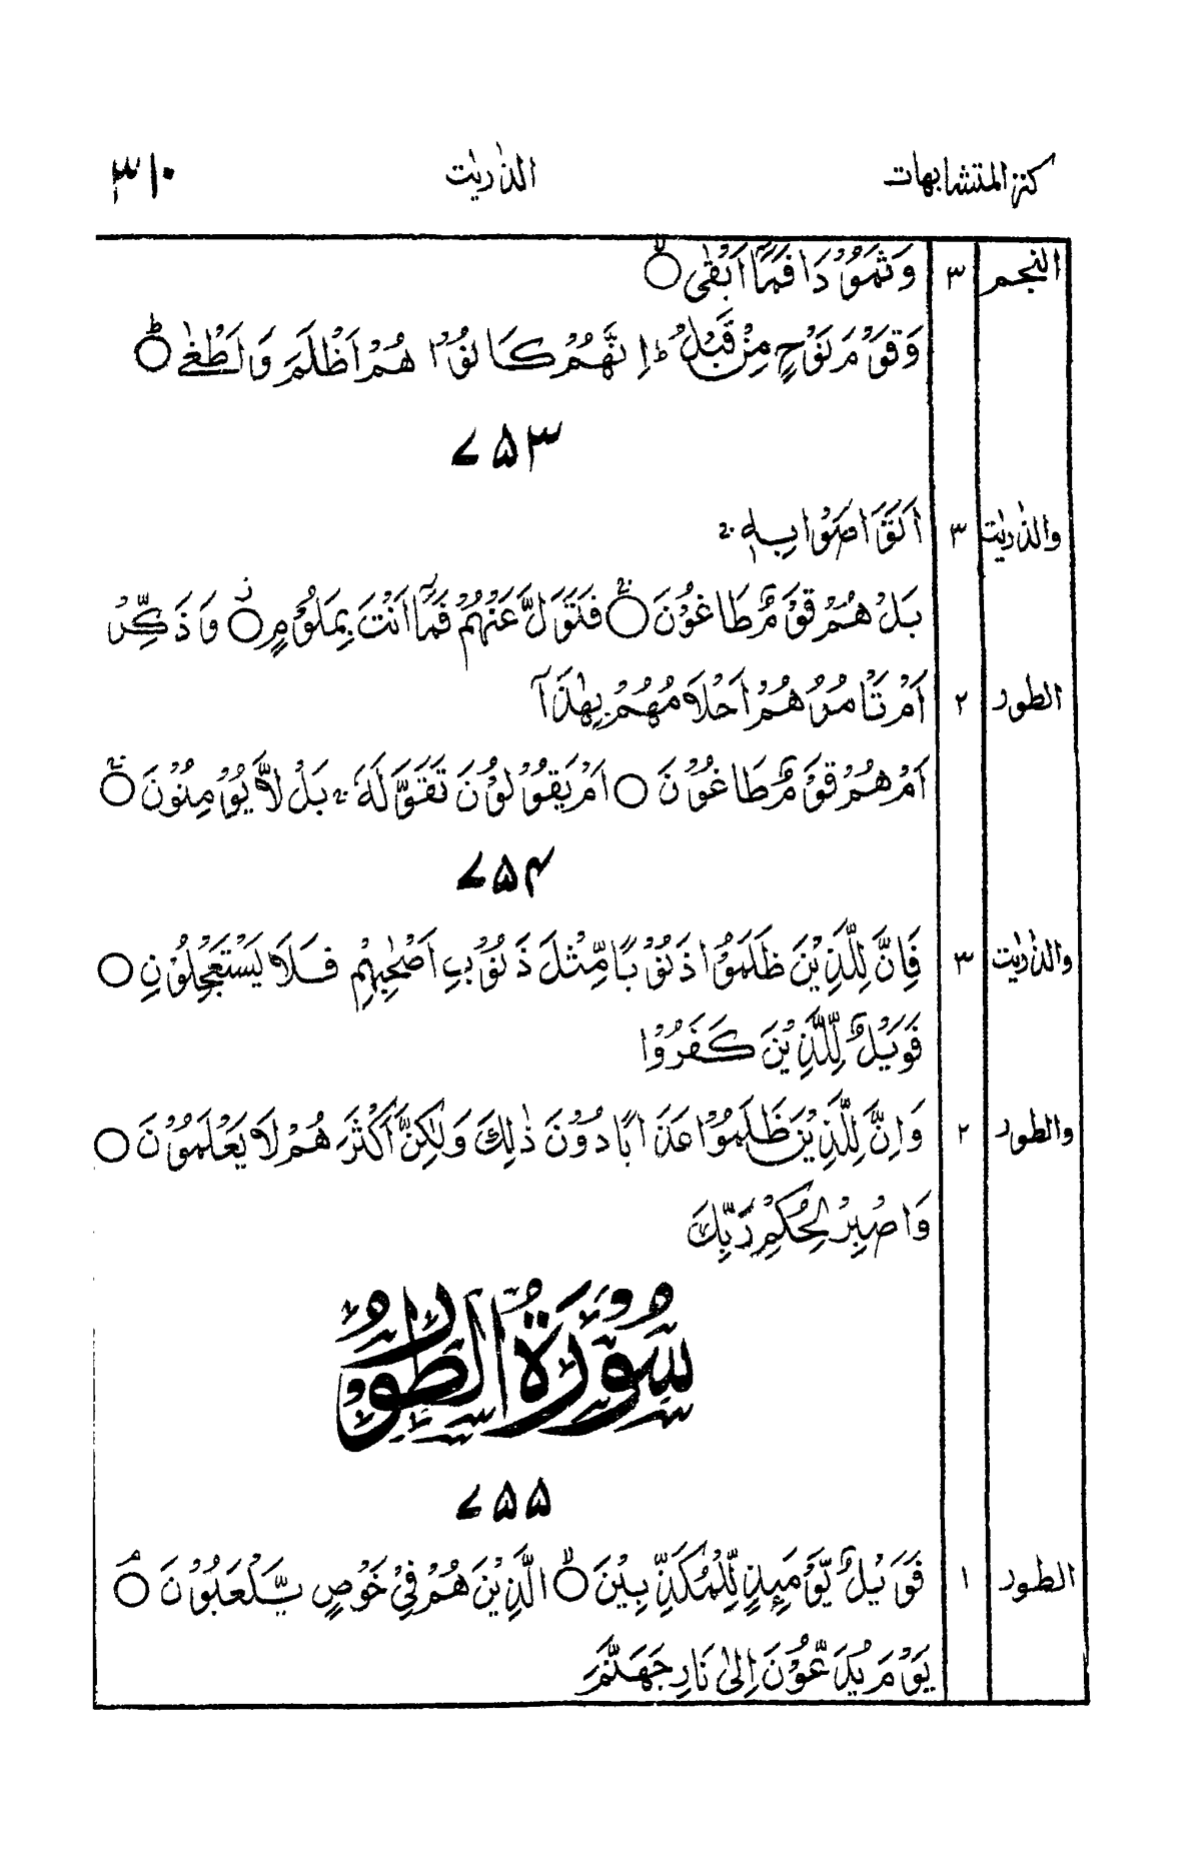 كنز المتشابهات الذّٰريٰت ٣١٠
النجم ٣ وَثَمُوْدَا۟ فَمَآ اَبْقٰى ۙ○
وَقَوْمَ نُوْحٍ مِّنْ قَبْلُ ؕ اِنَّهُمْ كَانُوْا هُمْ اَظْلَمَ وَاَطْغٰى ؕ○
٧٥٣
والذّٰريٰت ٣ اَتَوَاصَوْا بِهٖ ۚ
بَلْ هُمْ قَوْمٌ طَاغُوْنَ ۚ○ فَتَوَلَّ عَنْهُمْ فَمَآ اَنْتَ بِمَلُوْمٍ ۫○ وَذَكِّرْ
الطور ٢ اَمْ تَاْمُرُهُمْ اَحْلَامُهُمْ بِهٰذَآ
اَمْ هُمْ قَوْمٌ طَاغُوْنَ ○ اَمْ يَقُوْلُوْنَ تَقَوَّلَهٗ ۚ بَلْ لَّا يُؤْمِنُوْنَ ۚ○
٧٥٤
والذّٰريٰت ٣ فَاِنَّ لِلَّذِيْنَ ظَلَمُوْا ذَنُوْبًا مِّثْلَ ذَنُوْبِ اَصْحٰبِهِمْ فَلَا يَسْتَعْجِلُوْنِ ○
فَوَيْلٌ لِّلَّذِيْنَ كَفَرُوْا
والطور ٢ وَاِنَّ لِلَّذِيْنَ ظَلَمُوْا عَذَابًا دُوْنَ ذٰلِكَ وَلٰكِنَّ اَكْثَرَهُمْ لَا يَعْلَمُوْنَ ○
وَاصْبِرْ لِحُكْمِ رَبِّكَ
سُوْرَةُ الطُّوْرِ
٧٥٥
الطور ١ فَوَيْلٌ يَّوْمَىِٕذٍ لِّلْمُكَذِّبِيْنَ ۙ○ الَّذِيْنَ هُمْ فِيْ خَوْضٍ يَّلْعَبُوْنَ ۘ○
يَوْمَ يُدَعُّوْنَ اِلٰى نَارِ جَهَنَّمَ